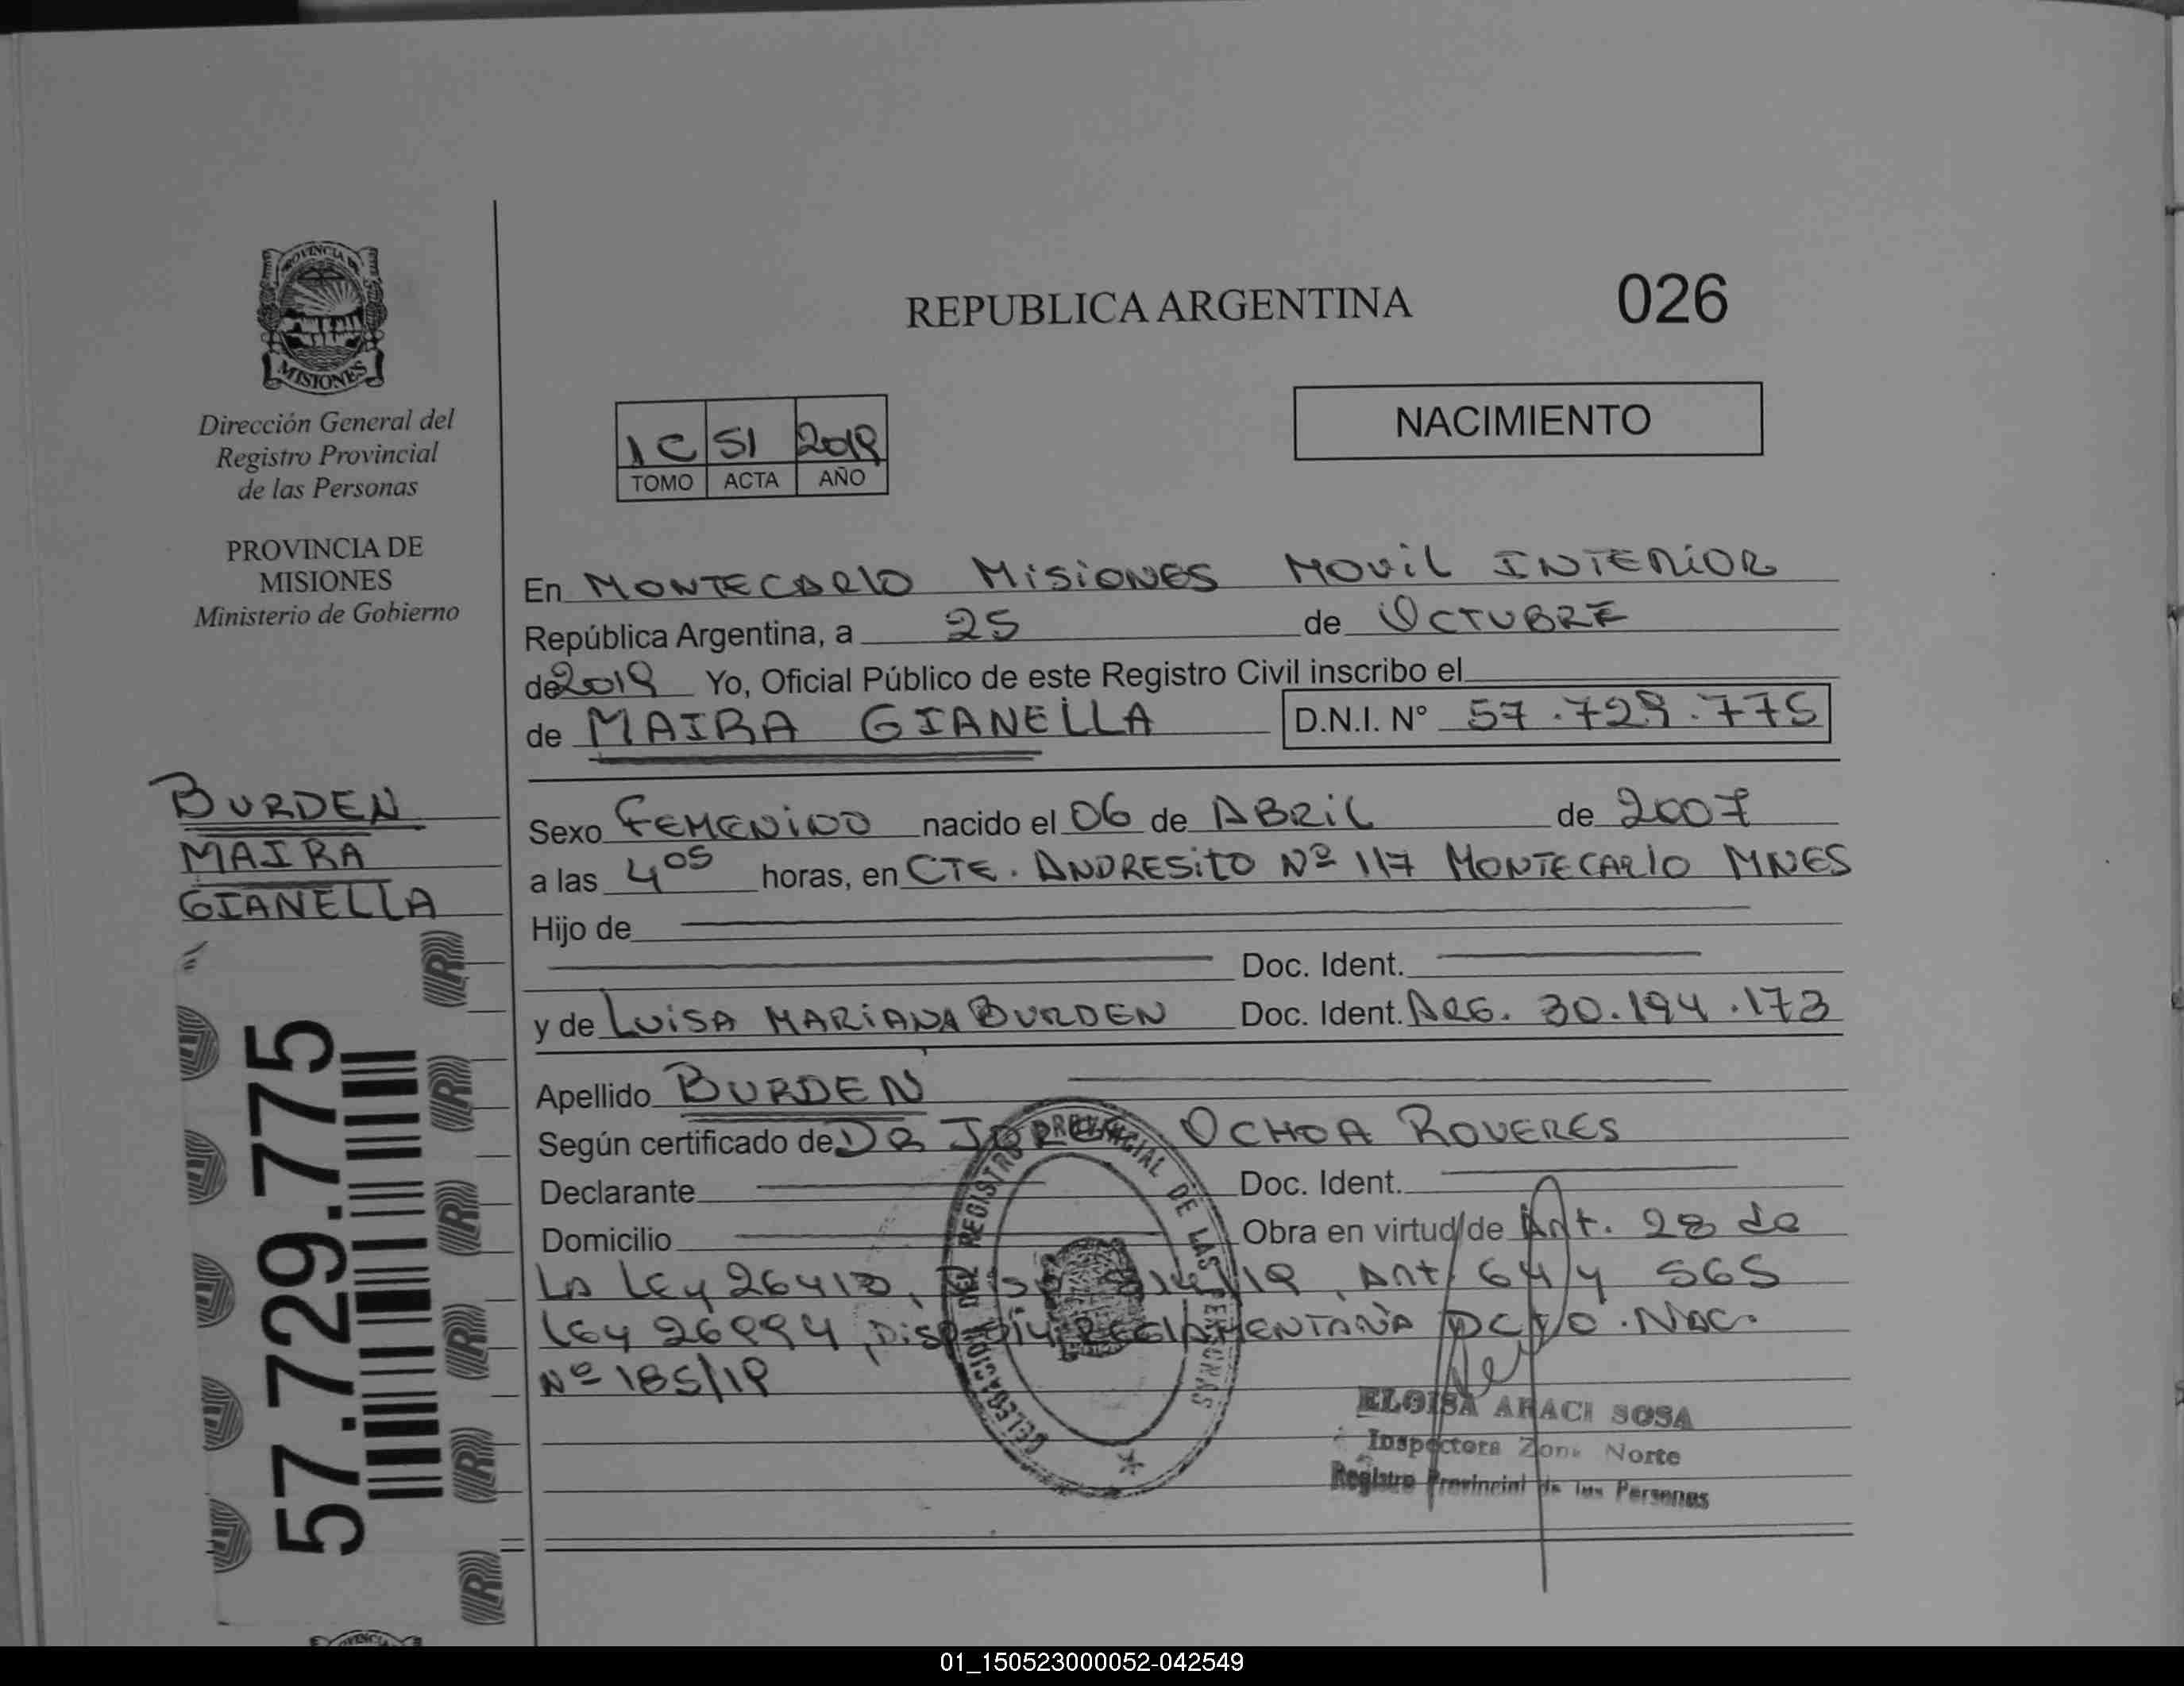 PROVINCIA DE
MISIONES
Dirección General del
Registro Provincial
de las Personas
PROVINCIA DE
MISIONES
Ministerio de Gobierno
BURDEN
MAIRA
GIANELLA
57.729.775
REPUBLICA ARGENTINA
026
1C 51 2019
TOMO ACTA AÑO
NACIMIENTO
En MONTECARLO MISIONES MOVIL INTERIOR
República Argentina, a 25 de OCTUBRE
de 2019 Yo, Oficial Público de este Registro Civil inscribo el
de MAIRA GIANELLA D.N.I. Nº 57.729.775
Sexo FEMENINO nacido el 06 de ABRIL de 2007
a las 4 05 horas, en CTE. ANDRESITO Nº 117 MONTECARLO MNES
Hijo de
Doc. Ident.
y de LUISA MARIANA BURDEN Doc. Ident. ARG. 30.194.173
Apellido BURDEN
Según certificado de DR JORGE OCHOA ROVERES
Declarante Doc. Ident.
Domicilio Obra en virtud de Art. 28 de
LA LEY 26413, Art 64 y 565
LEY 26994, REGLAMENTARIA DCTO. NAC.
Nº 185/19
DELEGACION DEL REGISTRO PROVINCIAL DE LAS PERSONAS
ELOISA ARACI SOSA
Inspectora Zona Norte
Registro Provincial de las Personas
01_150523000052-042549